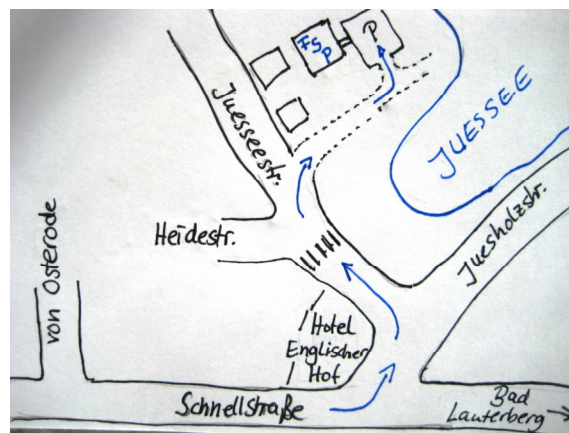 P
FS
P
Juesseestr.
JUESSEE
Juesholzstr.
Heidestr.
von Osterode
Hotel
Englischer
Hof
Schnellstraße
Bad
Lauterberg